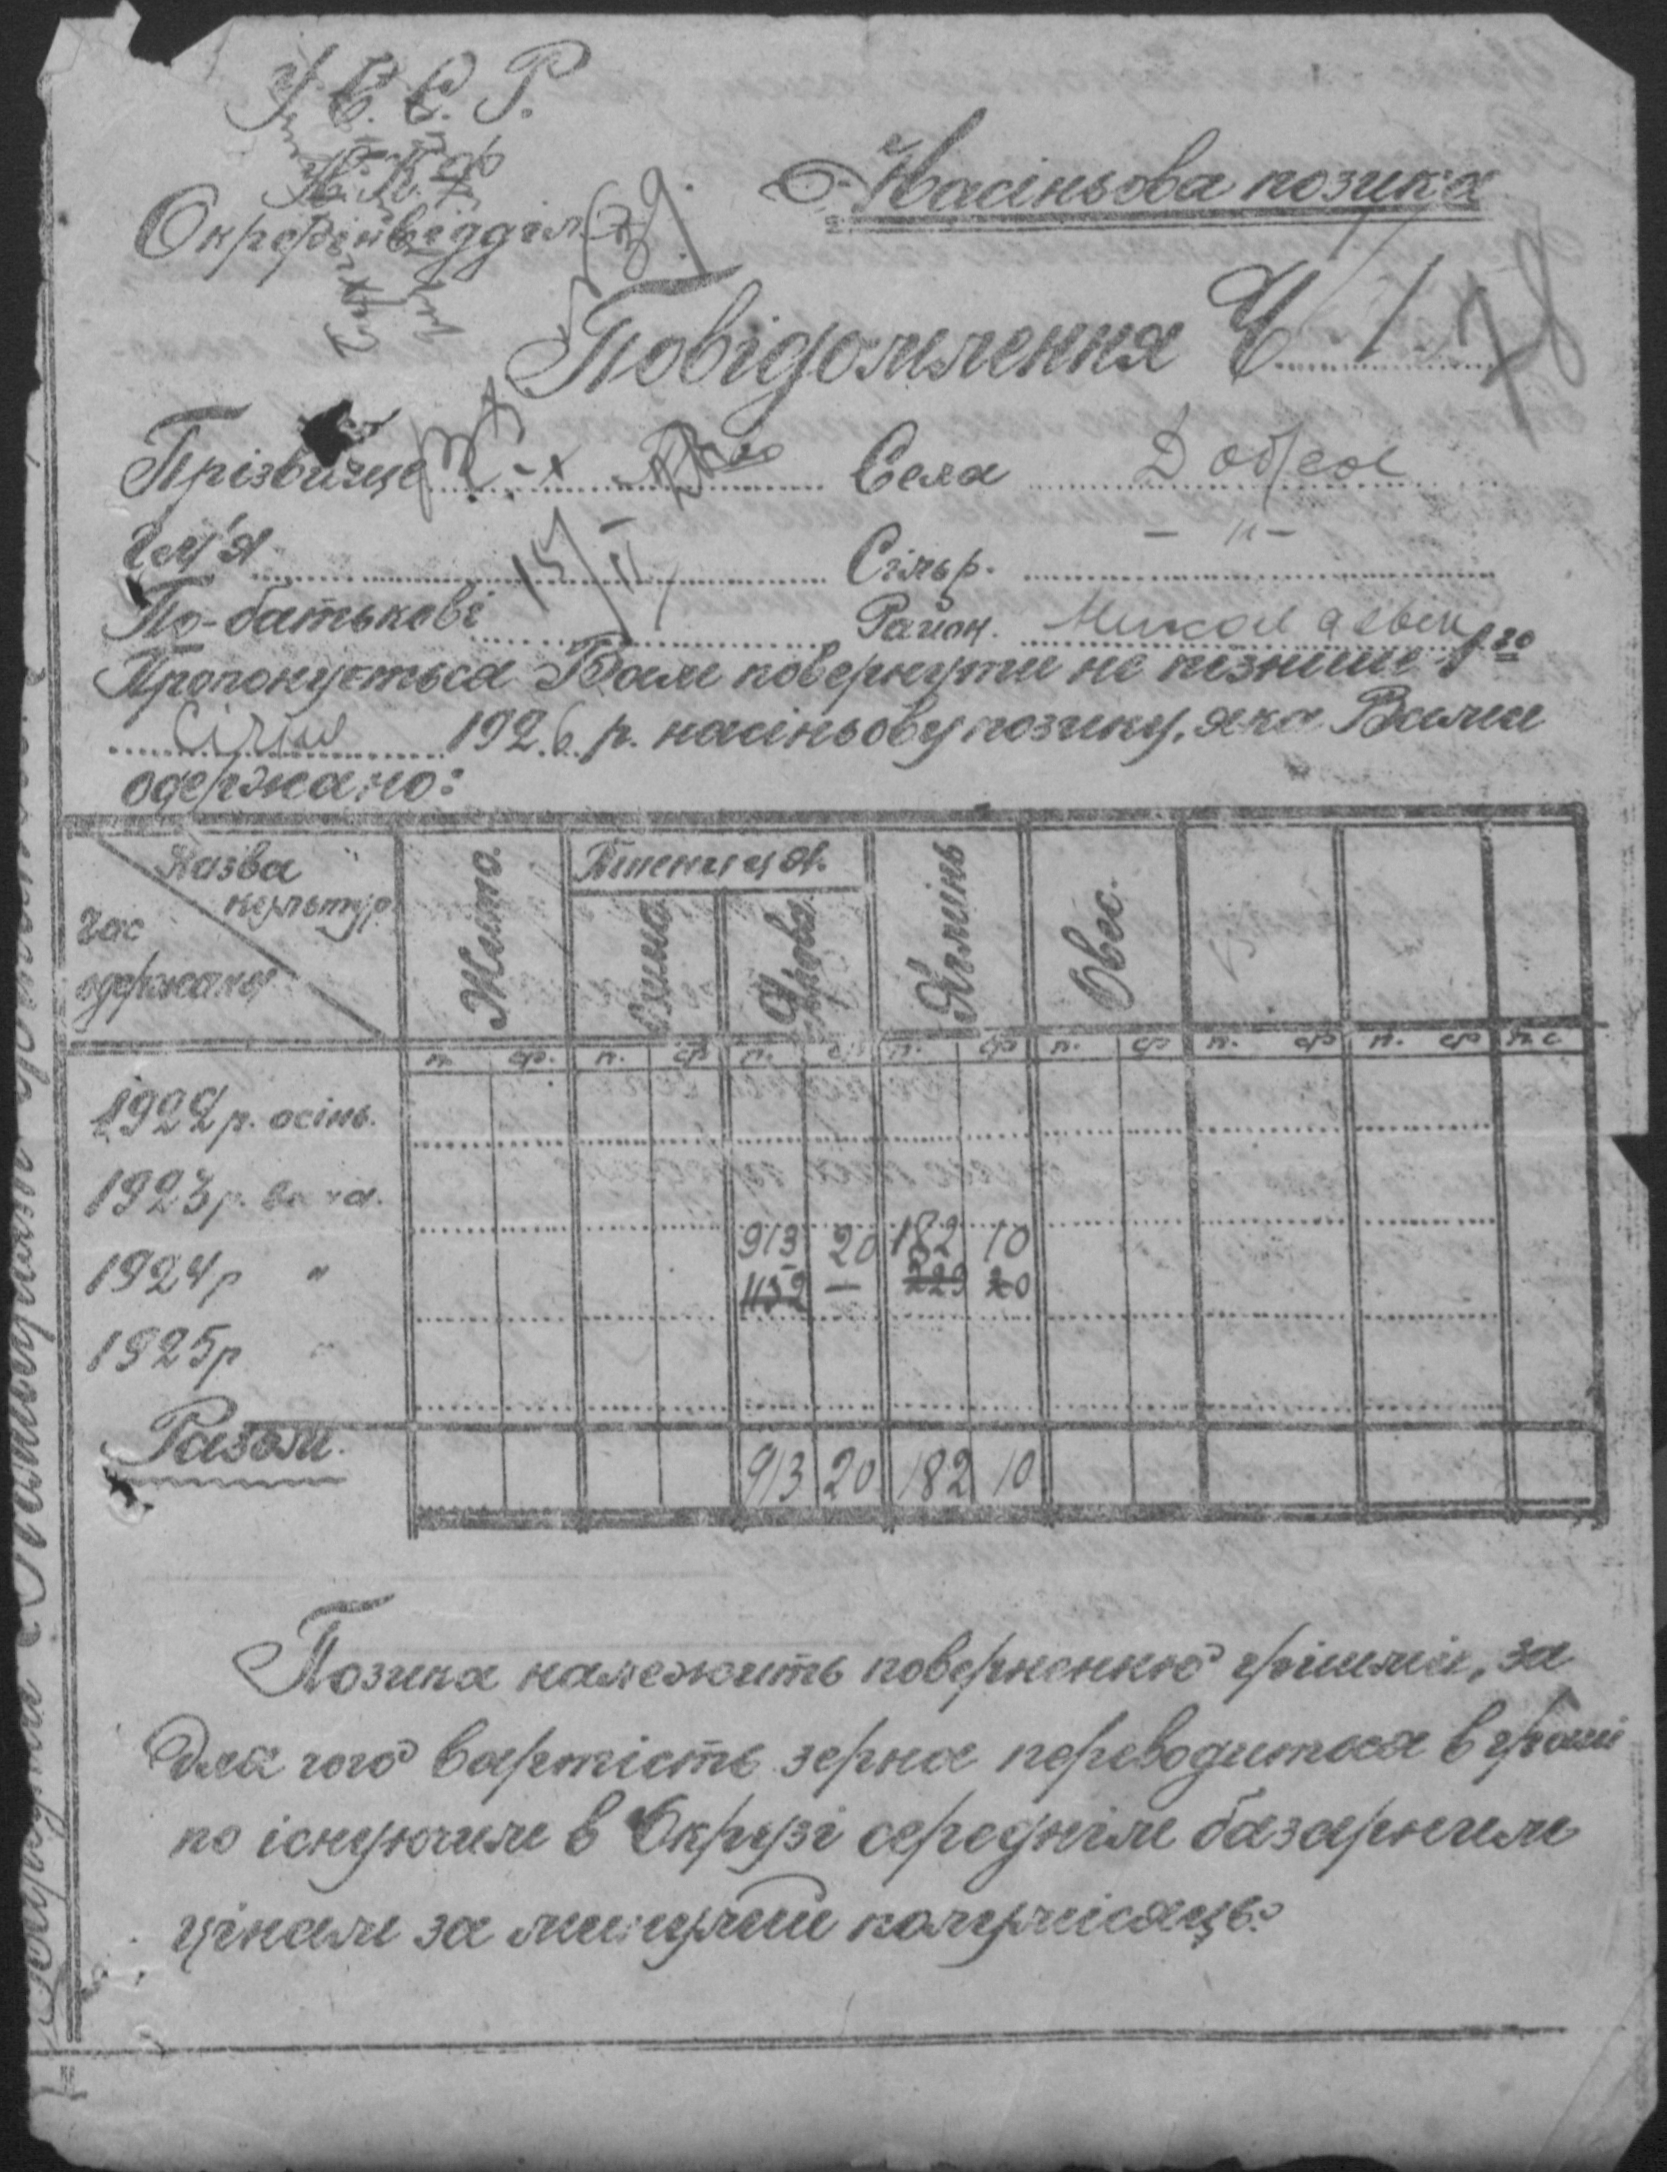 У. С. С. Р.
Н. К. Ф.
Окрфінвідділ
Насіньова позика
Повідомлення Ч 1
78
Прізвище Села Добрея
Ім'я Сільр. – „ –
15/II
По-батькові Район. Миколаевськ
Пропонується Вам повернути не пізніше 1го
Січня 1926 р. насіньову позику, яка Вами
одержано:
Назва культур
Час одержання
Жито Пшениця Ячмінь Овес.
Озима Ярова
п. ф. п. ф п. ф п. ф п. ф п. ф п. ф п. ф
1922 р. осінь.
1923 р. весна.
913 20 182 10
1924 р „ 1152 – 229 20
1925 р „
Разом. 913 20 182 10
Позика належить поверненню грішми, за
для чого вартість зерна переводиться в гроші
по існуючим в Окрузі середнім базарним
цінам за минулий полумісяць.